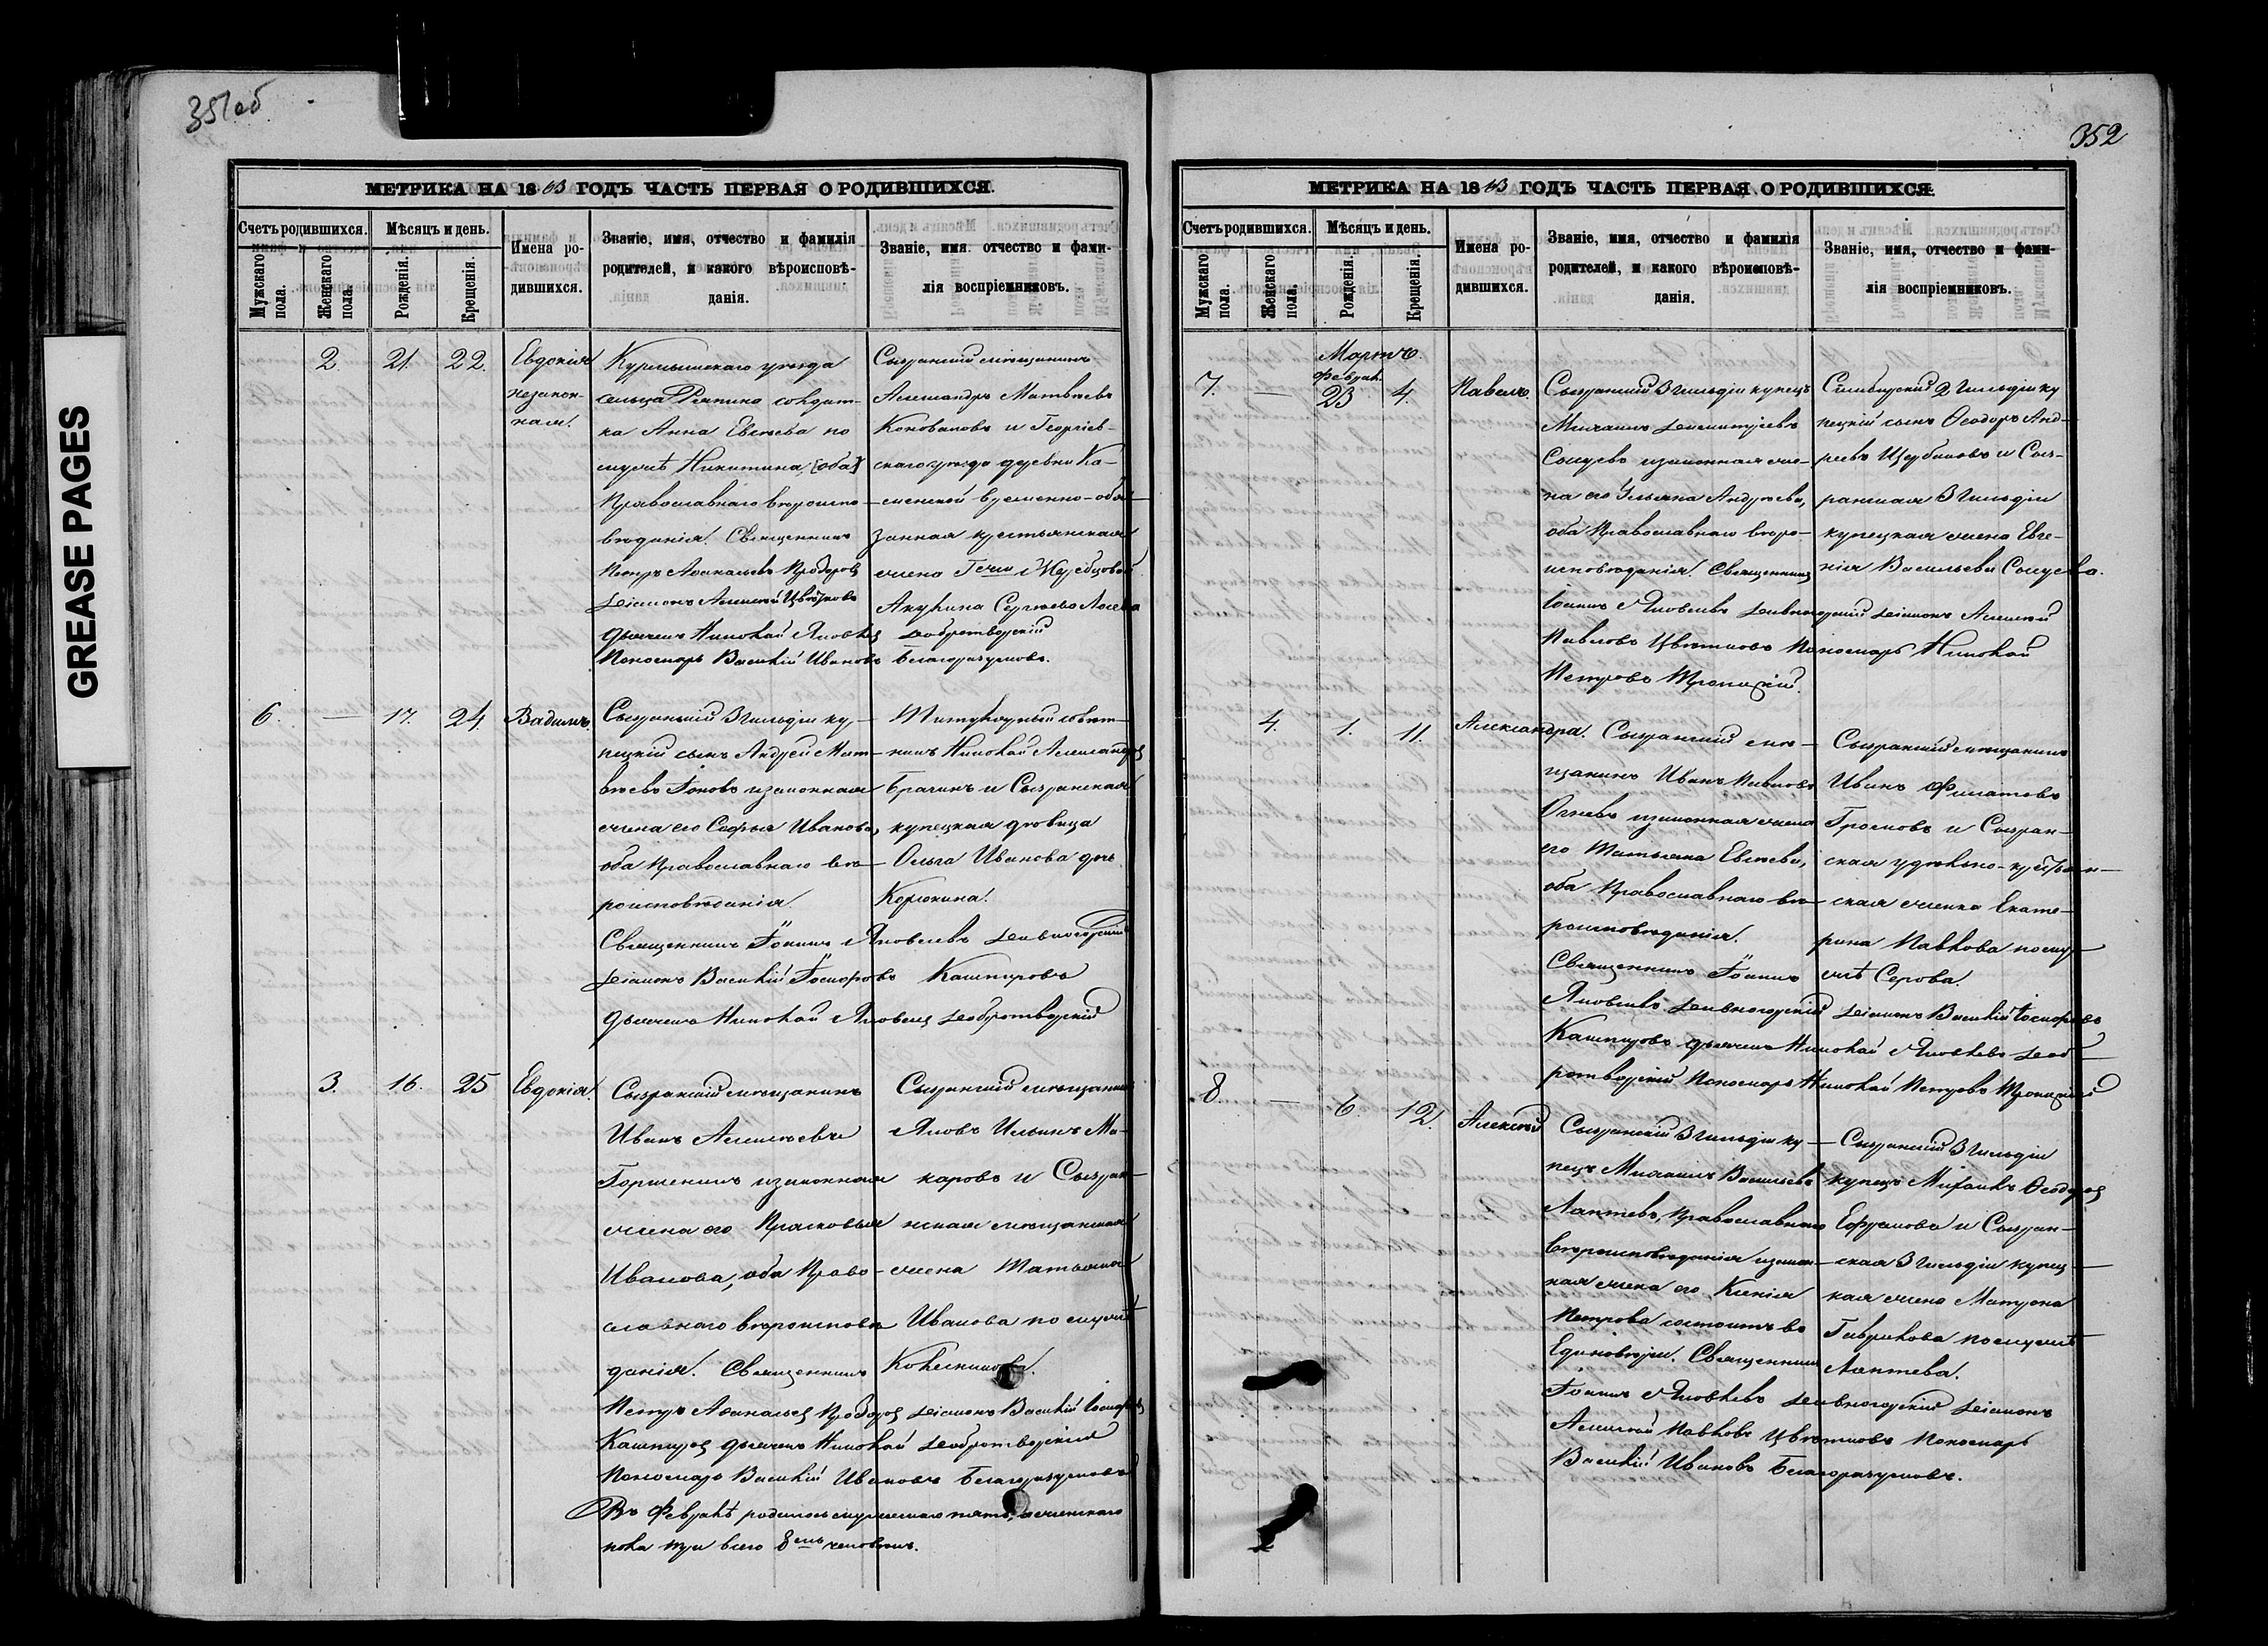 351об
GREASE PAGES
МЕТРИКА НА 1863 ГОДЪ ЧАСТЬ ПЕРВАЯ О РОДИВШИХСЯ.
Счетъ родившихся.
Мѣсяцъ и день.
Мужскаго пола.
Женскаго пола.
Рожденія.
Крещенія.
Имена ро-
дившихся.
Званіе, имя, отчество и фамилія
родителей, и какого вѣроисповѣ-
данія.
Званіе, имя. отчество и фами-
лія воспріемниковъ.
2. 21. 22.
Евдокія
незакон-
ная.
Курмышскаго уѣзда
сельца Репина солдат-
ка Анна Евсѣева по
мужѣ Никитина, [оба]
Православнаго вѣроиспо-
вѣданія. Священникъ
Петръ Аѳанасьевъ
Діаконъ Алексѣй Цвѣтковъ
дьячекъ Николай Яковлев Добротворскій
Пономарь Василій Ивановъ Благоразумовъ.
Сызранскій мѣщанинъ
Александръ Матвѣевъ
Коноваловъ и Георгіев-
скаго уѣзда деревни Ка-
менской временно-обя-
занная крестьянская
жена Жеребцовой
Акулина Сергѣева
6. — 17. 24. Вадимъ.
Сызранскій 3 гильдіи ку-
пецкій сынъ Андрей Мат-
вѣевъ Поповъ и законная
жена его Софья Иванова,
оба Православнаго вѣ-
роисповѣданія.
Священникъ Іоаннъ Яковлевъ Дивногорскій
Діаконъ Василій Іосифовъ Кашпировъ
дьячекъ Николай Яковлев Добротворскій
Титулярный совѣт-
никъ Николай Александров
Брагинъ и Сызранская
купецкая дѣвица
Ольга Иванова дочь
Корюкина.
3. 16. 25 Евдокія.
Сызранскій мѣщанинъ
Иванъ Алексѣевъ
Горшенинъ и законная
жена его Прасковья
Иванова, оба Право-
славнаго вѣроисповѣ
данія. Священникъ
Петръ Аѳанасьев Діаконъ Василій Іосифовъ
Кашпиров дьячекъ Николай Добротворскій
Пономарь Василій Ивановъ Благоразумовъ
Въ Февралѣ родилось мужескаго пять, а женскаго
пола три всего 8емь человѣкъ.
Сызранскій мѣщанинъ
Яковъ Ильинъ Ма-
каровъ и Сызран-
нская мѣщанская
жена Татьяна
Иванова по мужѣ
Колесникова.
352
МЕТРИКА НА 1863 ГОДЪ ЧАСТЬ ПЕРВАЯ О РОДИВШИХСЯ.
Счетъ родившихся.
Мѣсяцъ и день.
Мужскаго пола.
Женскаго пола.
Рожденія.
Крещенія.
Имена ро-
дившихся.
Званіе, имя, отчество и фамилія
родителей, и какого вѣроисповѣ-
данія.
Званіе, имя, отчество и фами-
лія воспріемниковъ.
Мартъ.
Феврал.
7. — 23 4. Павелъ.
Сызранскій 3 гильдіи купецъ
Михаилъ Димитріевъ
Сыцевъ и законная же-
на его Ульяна Андреева,
оба Православнаго вѣро-
исповѣданія. Священникъ
Іоаннъ Яковлевъ Дивногорскій Діаконъ Алексѣй
Павловъ Цвѣтковъ Пономарь Николай
Петровъ Троицкій.
Симбирскій 2 гильдіи ку
пецкій сынъ Ѳеодоръ Анд-
реевъ Щербаковъ и Сыз-
ранская 3 гильдіи
купецкая жена Евге-
нія Васильева Сыцева.
4. 1. 11. Александра.
Сызранскій мѣ-
щанинъ Иванъ Павловъ
Огневъ и законная жена
его Татьяна Евсѣева,
оба Православнаго вѣ-
роисповѣданія.
Священникъ Іоаннъ
Яковлевъ Дивногорскій Діаконъ Василій Іосифовъ
Кашпировъ дьячекъ Николай Яковлевъ Доб-
ротворскій Пономарь Николай Петровъ Троицкій
Сызранскій мѣщанинъ
Иванъ Филатовъ
Громовъ и Сызран-
ская удѣльно-крестьян-
ская женка Екате-
рина Павлова по му-
жѣ Серова.
8. — 6 12. Алексѣй
Сызранскій 3 гильдіи ку-
пецъ Михаилъ Васильевъ
Лаптевъ, Православнаго
вѣроисповѣданія и закон-
ная жена его Ксенія
Петрова состоитъ въ
Единовѣріи. Священникъ
Іоаннъ Яковлевъ Дивногорскій Діаконъ
Алексѣй Павловъ Цвѣтковъ Пономарь
Василій Ивановъ Благоразумовъ.
Сызранскій 3 гильдіи
купецъ Михаилъ Ѳеодоров
Ефремовъ и Сызран-
ская 3 гильдіи купец-
кая жена Матрона
Гаврилова по мужѣ
Лаптева.